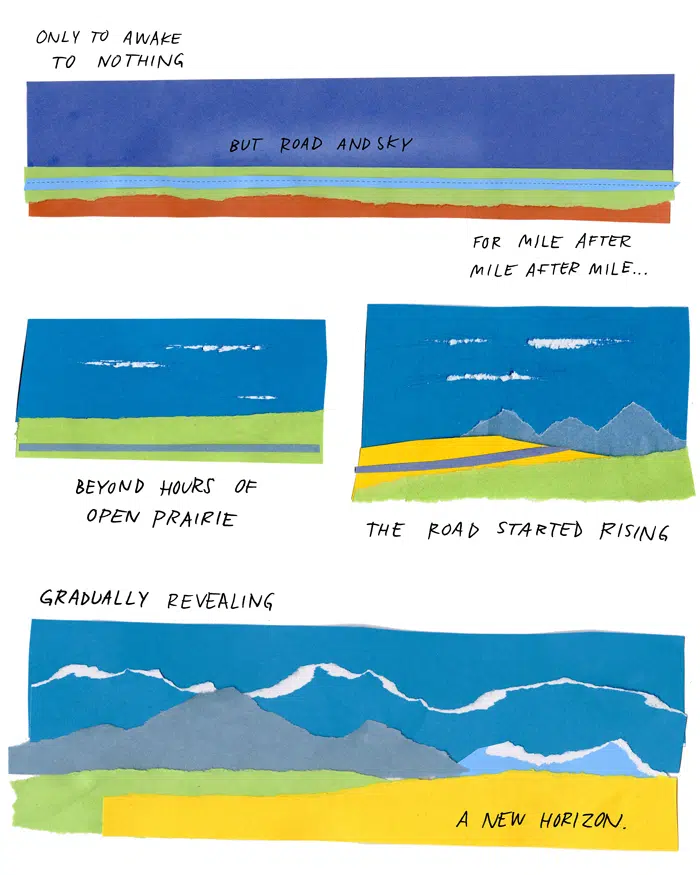 ONLY TO AWAKE
TO NOTHING
BUT ROAD AND SKY
FOR MILE AFTER
MILE AFTER MILE...
BEYOND HOURS OF
OPEN PRAIRIE
THE ROAD STARTED RISING
GRADUALLY REVEALING
A NEW HORIZON.